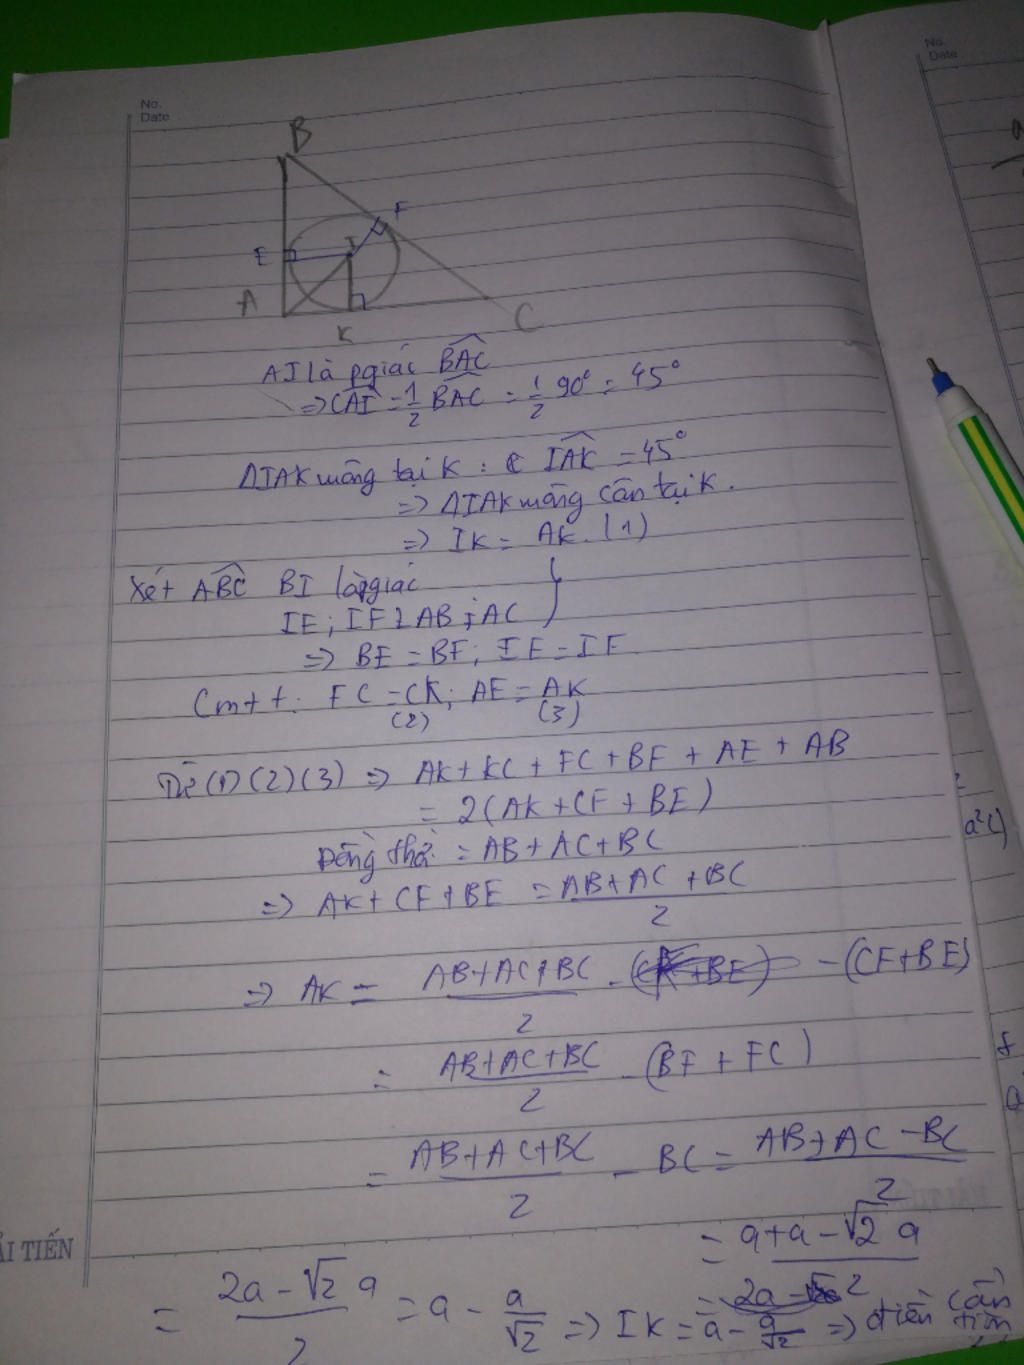 No.
Date
No.
Date
B
F
E
I
A
K
C
AI là pgiác BAC
=> CAI = 1/2 BAC = 1/2 90° = 45°
ΔIAK vuông tại K : IAK = 45°
=> ΔIAK vuông cân tại K.
=> IK = AK. (1)
Xét ABC BI là pgiác
IE ; IF ⊥ AB ; AC
=> BE = BF ; IE = IF
Cmtt: FC = CK ; AE = AK
(2) (3)
Từ (1) (2) (3) => AK + KC + FC + BF + AE + AB
= 2(AK + CF + BE)
Đồng thời = AB + AC + BC
=> AK + CF + BE = (AB + AC + BC)/2
=> AK = (AB + AC + BC)/2 - (CF + BE)
= (AB + AC + BC)/2 - (BF + FC)
= (AB + AC + BC)/2 - BC = (AB + AC - BC)/2
= (a + a - √2 a)/2
= (2a - √2 a)/2 = a - a/√2 => IK = a - a/√2 => điều cần tìm
ẢI TIẾN
a²c)